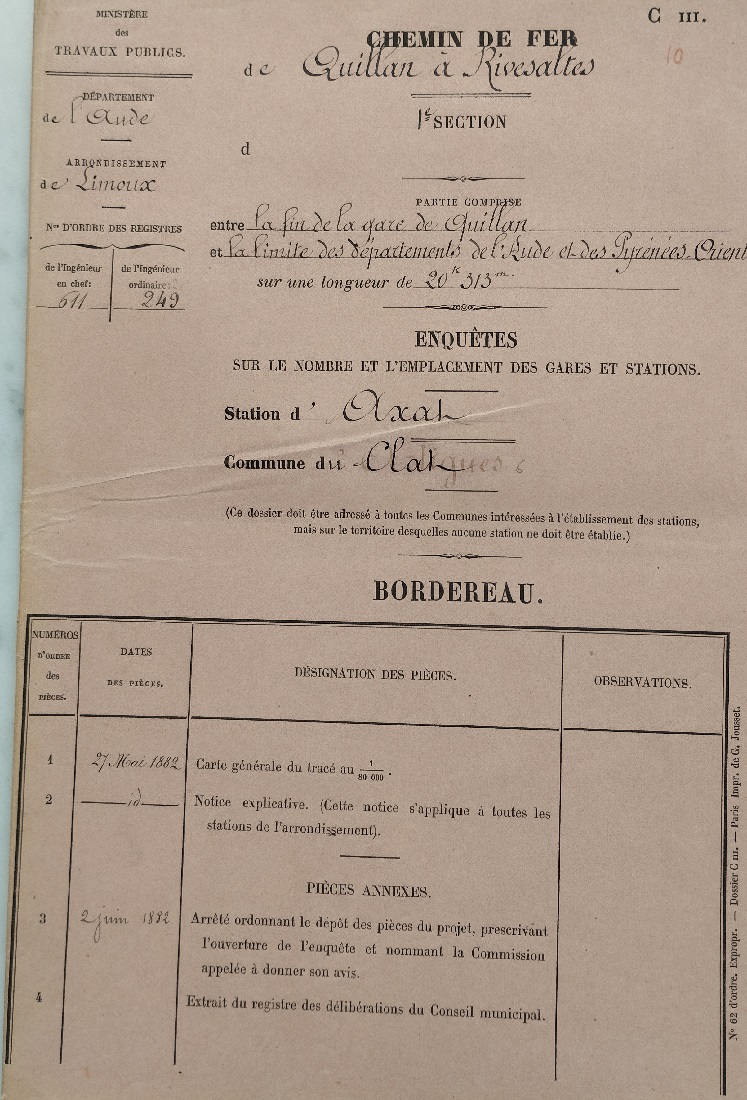 MINISTÈRE
des
TRAVAUX PUBLICS.
DÉPARTEMENT
de l'Aude
ARRONDISSEMENT
de Limoux
Nos D'ORDRE DES REGISTRES
de l'Ingénieur
en chef:
611
de l'Ingénieur
ordinaire:
249
C III.
10
CHEMIN DE FER
de Quillan à Rivesaltes
1e SECTION
d
PARTIE COMPRISE
entre la fin de la gare de Quillan
et la limite des départements de l'Aude et des Pyrénées-Orient
sur une longueur de 20k 313m.
ENQUÊTES
SUR LE NOMBRE ET L'EMPLACEMENT DES GARES ET STATIONS.
Station d' Axat
Commune du Clat
(Ce dossier doit être adressé à toutes les Communes intéressées à l'établissement des stations,
mais sur le territoire desquelles aucune station ne doit être établie.)
BORDEREAU.
NUMÉROS
D'ORDRE
des
PIÈCES.
DATES
DES PIÈCES.
DÉSIGNATION DES PIÈCES.
OBSERVATIONS.
1 27 Mai 1882 Carte générale du tracé au 1/80 000.
2 id Notice explicative. (Cette notice s'applique à toutes les
stations de l'arrondissement).
PIÈCES ANNEXES.
3 2 juin 1882 Arrêté ordonnant le dépôt des pièces du projet, prescrivant
l'ouverture de l'enquête et nommant la Commission
appelée à donner son avis.
4 Extrait du registre des délibérations du Conseil municipal.
No 62 d'ordre. Expropr. — Dossier C III. — Paris Impr. de G. Jousset.